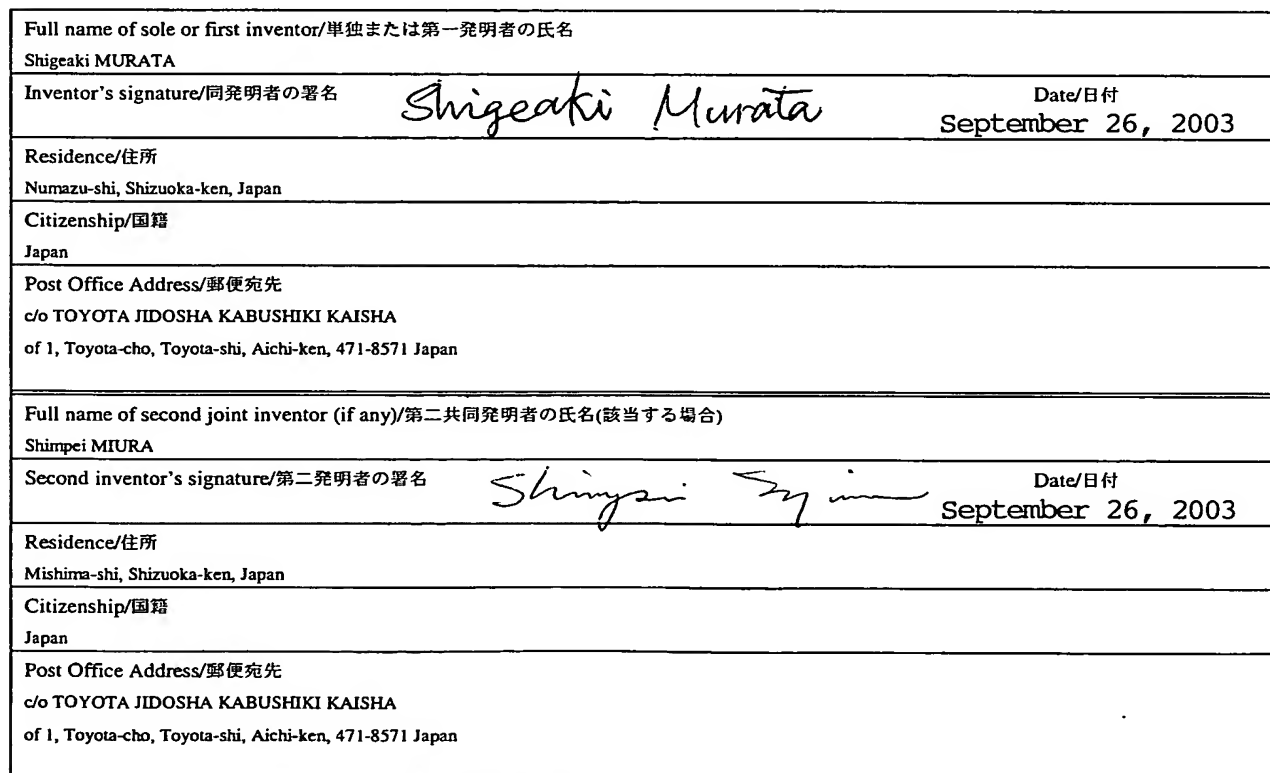 Full name of sole or first inventor/単独または第一発明者の氏名
Shigeaki MURATA
Inventor's signature/同発明者の署名 Shigeaki Murata Date/日付
September 26, 2003
Residence/住所
Numazu-shi, Shizuoka-ken, Japan
Citizenship/国籍
Japan
Post Office Address/郵便宛先
c/o TOYOTA JIDOSHA KABUSHIKI KAISHA
of 1, Toyota-cho, Toyota-shi, Aichi-ken, 471-8571 Japan
Full name of second joint inventor (if any)/第二共同発明者の氏名(該当する場合)
Shimpei MIURA
Second inventor's signature/第二発明者の署名 Date/日付
September 26, 2003
Residence/住所
Mishima-shi, Shizuoka-ken, Japan
Citizenship/国籍
Japan
Post Office Address/郵便宛先
c/o TOYOTA JIDOSHA KABUSHIKI KAISHA
of 1, Toyota-cho, Toyota-shi, Aichi-ken, 471-8571 Japan